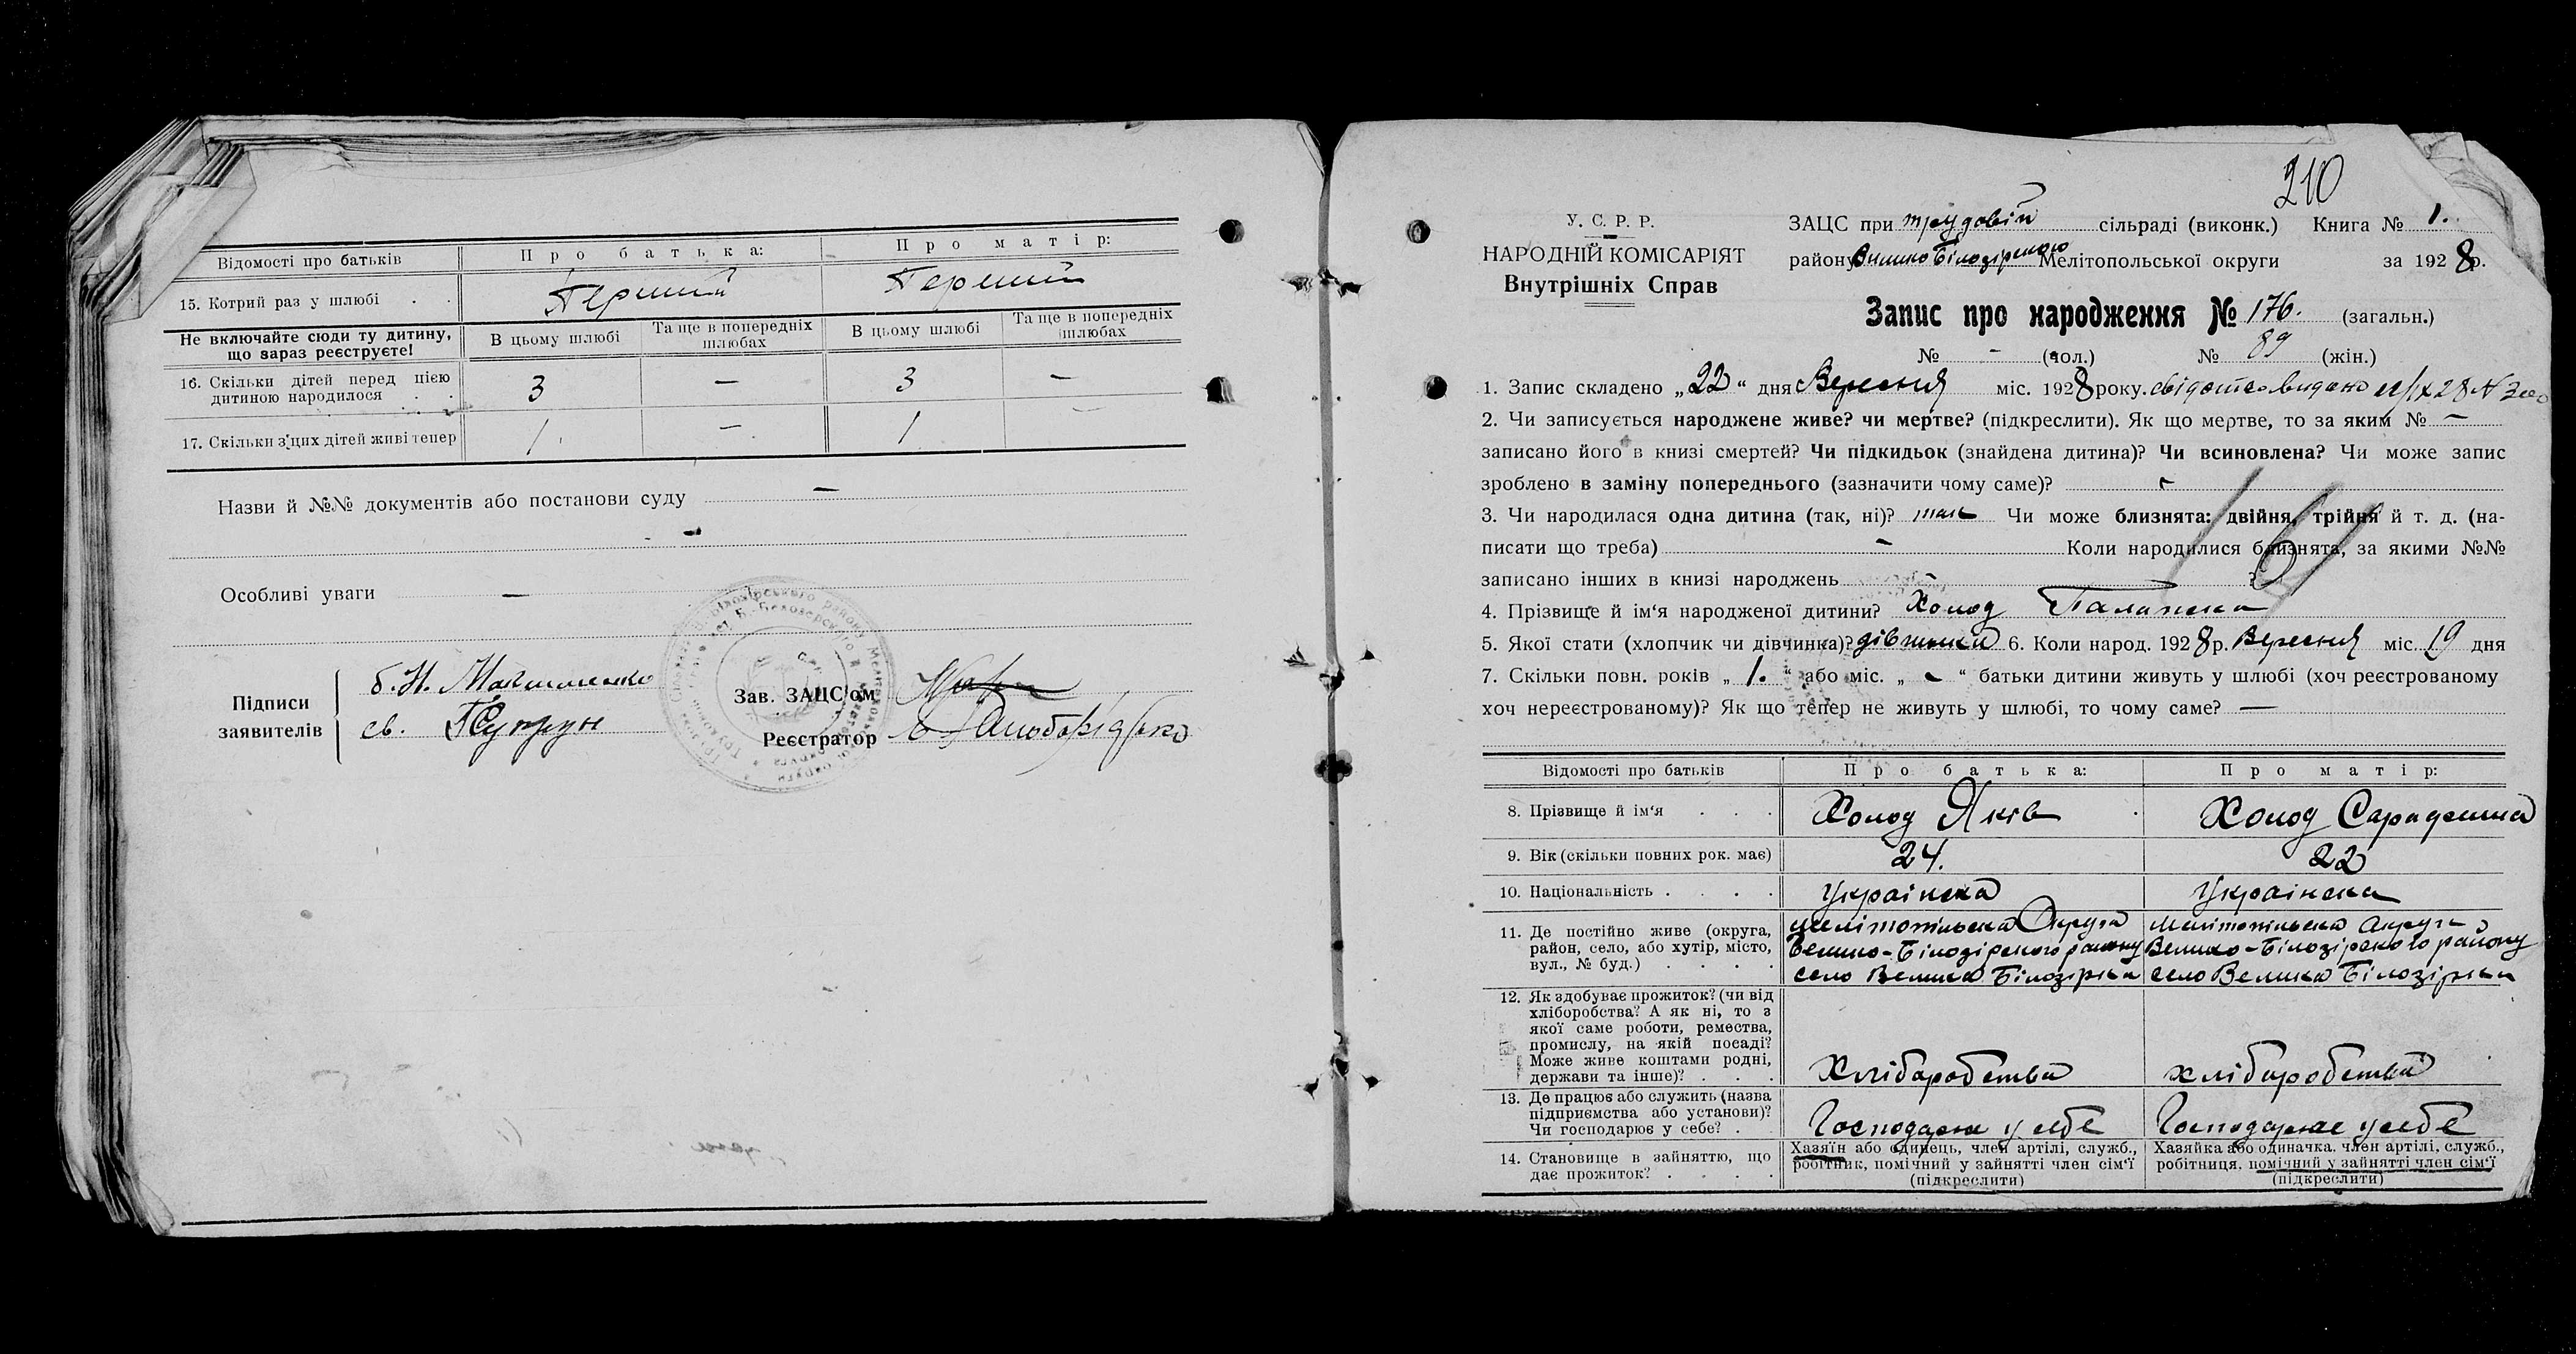 Відомості про батьків Про батька: Про матір:
15. Котрий раз у шлюбі . . Перший Перший
Не включайте сюди ту дитину, що зараз реєструєте! В цьому шлюбі Та ще в попередніх шлюбах В цьому шлюбі Та ще в попередніх шлюбах
16. Скільки дітей перед цією дитиною народилося . . 3 — 3 —
17. Скільки з'цих дітей живі тепер 1 — 1 —
Назви й №№ документів або постанови суду —
Особливі уваги —
Підписи заявителів
б. Н. Максименко
св. Супрун
Зав. ЗАЦС'ом
Реєстратор
210
У. С. Р. Р.
НАРОДНІЙ КОМІСАРІЯТ
Внутрішніх Справ
ЗАЦС при трудовій сільраді (виконк.) Книга № 1.
району Велико Білозірською Мелітопольської округи за 1928 р.
Запис про народження № 176. (загальн.)
№ - (чол.) № 89 (жін.)
1. Запис складено „22“ дня Вересня міс. 1928 року. свідотво видано
2. Чи записується народжене живе? чи мертве? (підкреслити). Як що мертве, то за яким № —
записано його в книзі смертей? Чи підкидьок (знайдена дитина)? Чи всиновлена? Чи може запис
зроблено в заміну попереднього (зазначити чому саме)? -
3. Чи народилася одна дитина (так, ні)? так Чи може близнята: двійня, трійня й т. д. (на-
писати що треба) - Коли народилися близнята, за якими №№
записано інших в книзі народжень - ?
161
4. Прізвище й ім'я народженої дитини? Холод Палажка
5. Якої стати (хлопчик чи дівчинка)? дівчинка 6. Коли народ. 1928 р. Вересня міс. 19 дня
7. Скільки повн. років „1.“ або міс. „-“ батьки дитини живуть у шлюбі (хоч реєстрованому
хоч нереєстрованому)? Як що тепер не живуть у шлюбі, то чому саме? —
Відомості про батьків Про батька: Про матір:
8. Прізвище й ім'я . . . Холод Яків Холод Сарадонина
9. Вік (скільки повних рок. має) 24. 22
10. Національність . . . . Українска Українска
11. Де постійно живе (округа, район, село, або хутір, місто, вул., № буд.) . . . .
Мелітопільска Округа Велико-Білозірского району село Велика Білозірка
Мелітопільска Округа Велико-Білозірского району село Велика Білозірка
12. Як здобуває прожиток? (чи від хліборобства? А як ні, то з якої саме роботи, ремества, промислу, на якій посаді? Може живе коштами родні, держави та інше)? . . .
Хлібаробства хлібаробства
13. Де працює або служить (назва підприємства або установи)? Чи господарює у себе? .
Господарює у себе Господарює у себе
14. Становище в зайняттю, що дає прожиток? . . . .
Хазяїн або одинець, член артілі, служб., робітник, помічний у зайнятті член сім'ї (підкреслити)
Хазяйка або одиначка. член артілі, служб., робітниця, помічний у зайнятті член сім'ї (підкреслити)